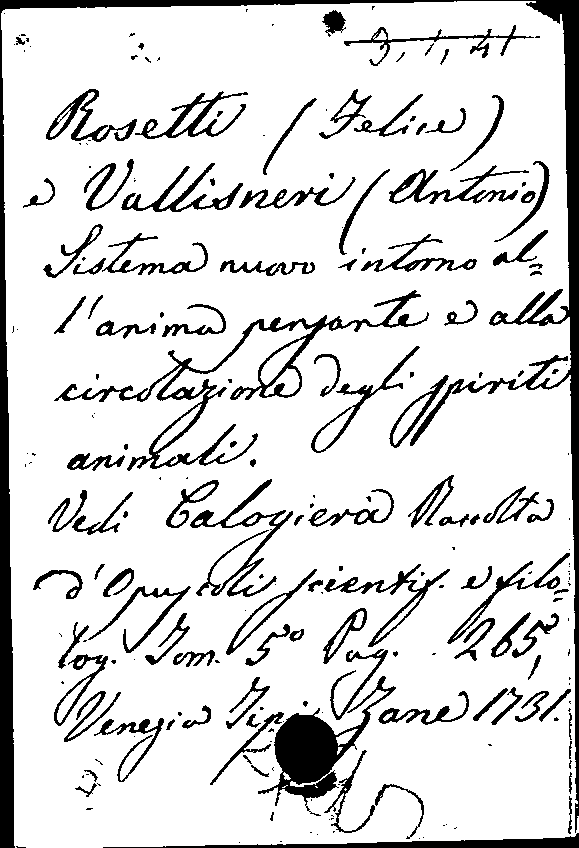 3, 1, 41
Rosetti (Felice)
e Vallisneri (Antonio)
Sistema nuovo intorno al=
l'anima pensante e alla
circolazione degli spiriti
animali.
Vedi Calogierà Raccolta
d'Opuscoli scientif. e filo=
log. Tom. 5º Pag. 265,
Venezia Tipi Zane 1731.